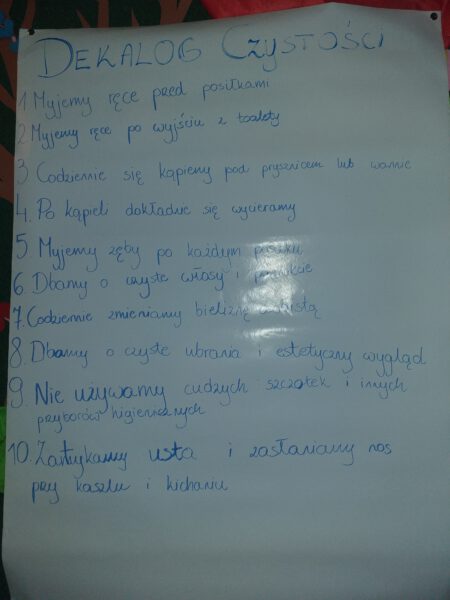 DEKALOG CZYSTOŚCI
1. Myjemy ręce przed posiłkami
2. Myjemy ręce po wyjściu z toalety
3. Codziennie się kąpiemy pod prysznicem lub wannie
4. Po kąpieli dokładnie się wycieramy
5. Myjemy zęby po każdym posiłku
6. Dbamy o czyste włosy i
7. Codziennie zmieniamy bieliznę osobistą
8. Dbamy o czyste ubrania i estetyczny wygląd
9. Nie używamy cudzych szczotek i innych
przyborów higienicznych
10. Zatykamy usta i zasłaniamy nos
przy kaszlu i kichaniu